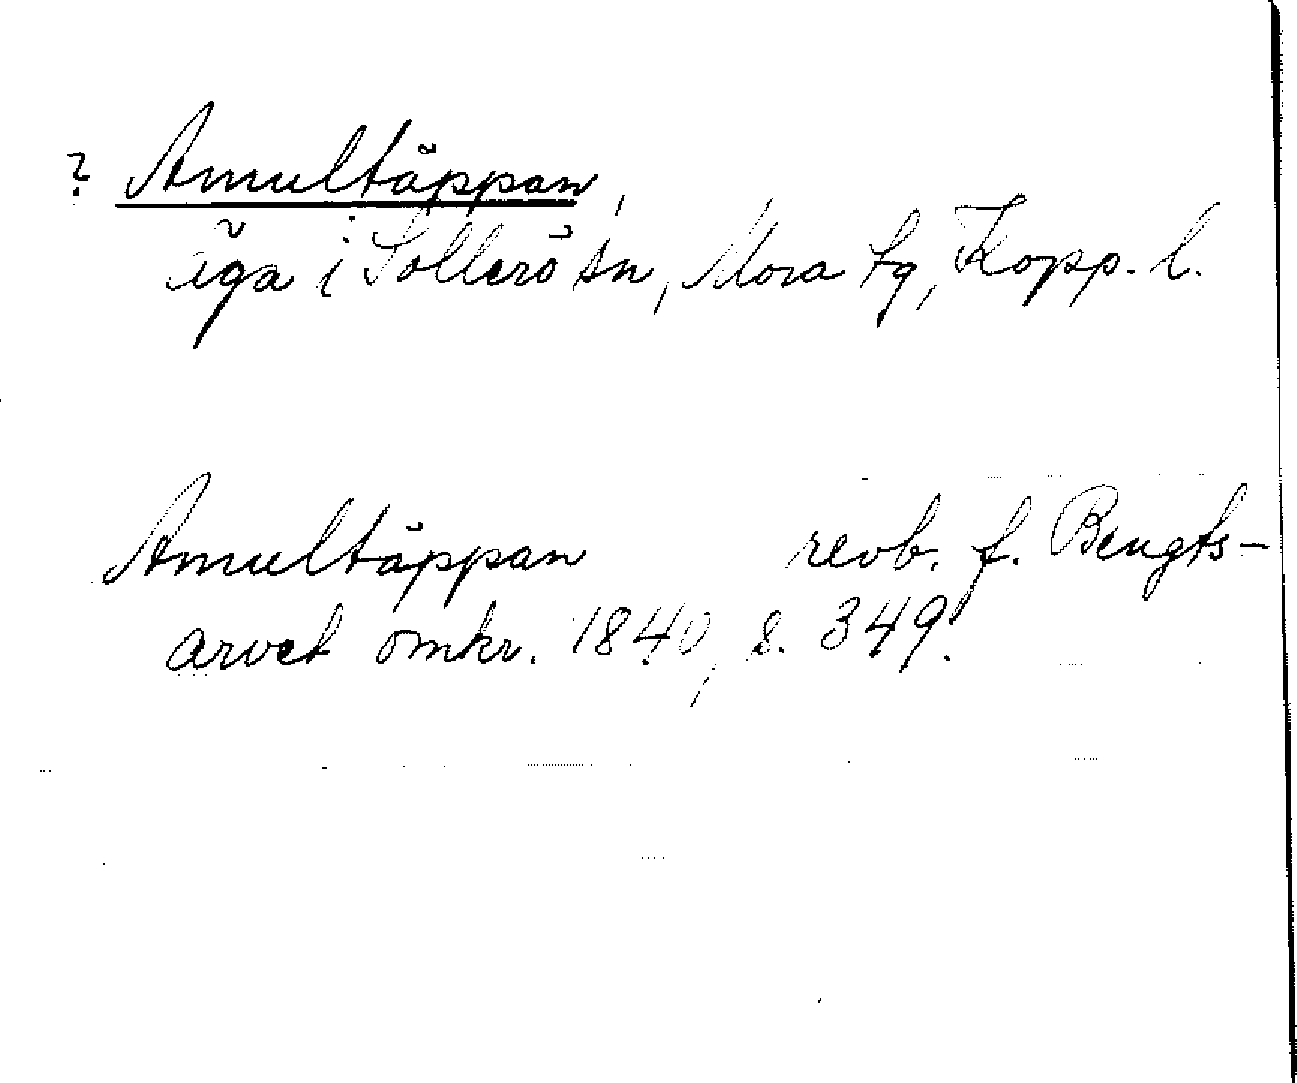 ? Amultäppan,
äga i Sollerö sn, Mora tg, Kopp. l.
Amultäppan revb. f. Bengts-
arvet omkr. 1840, s. 349.